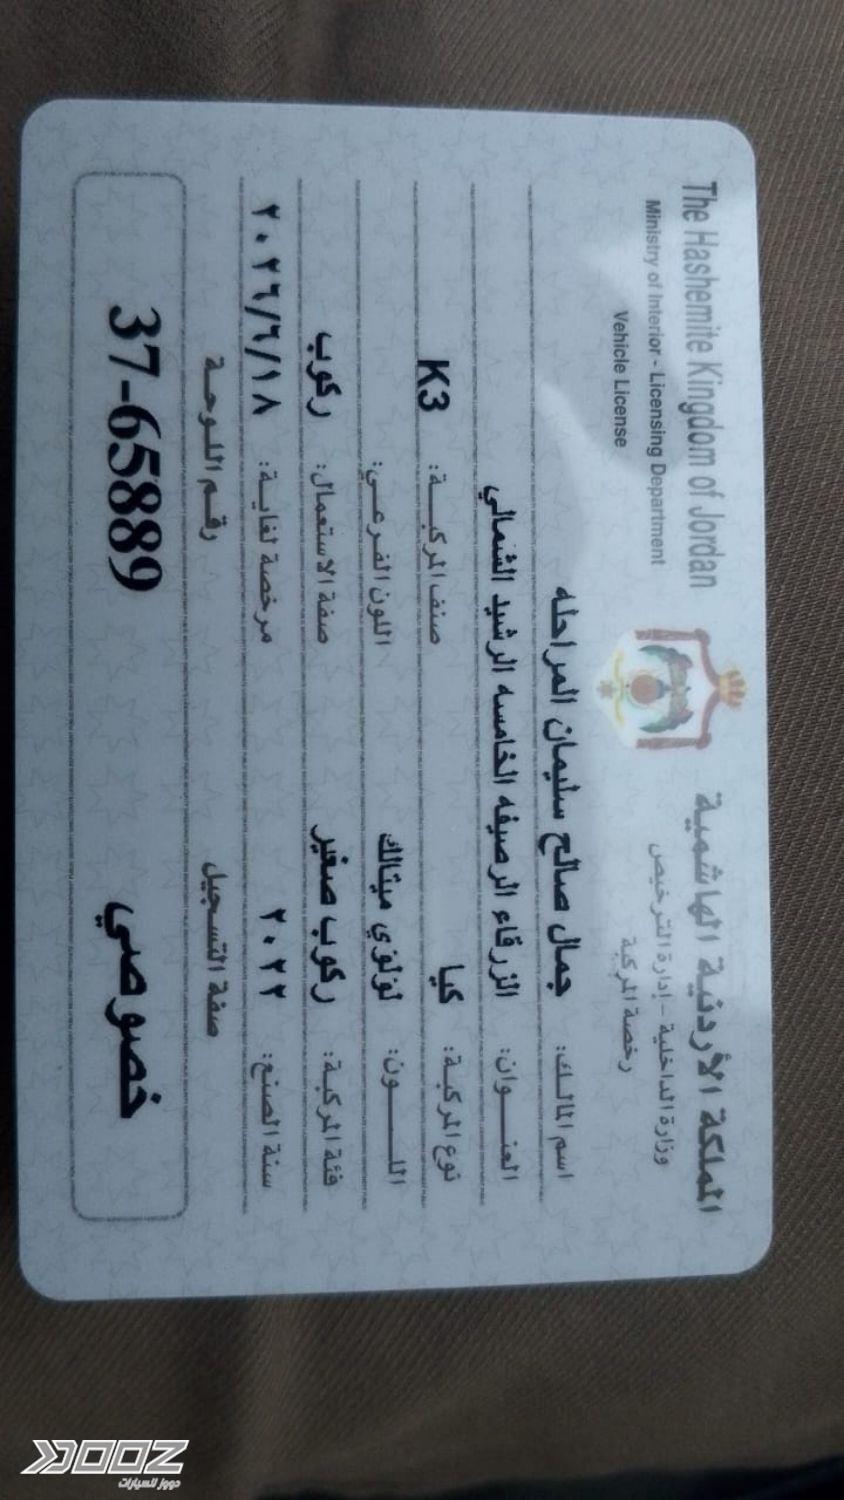 The Hashemite Kingdom of Jordan المملكة الأردنية الهاشمية
Ministry of Interior - Licensing Department وزارة الداخلية - إدارة الترخيص
Vehicle License رخصة المركبة
اسم المالك: جمال صالح سليمان المراحله
العنوان: الزرقاء الرصيفه الخامسه الرشيد الشمالي
نوع المركبة: كيا صنف المركبة: K3
اللون: لؤلؤي ميتالك اللون الفرعي:
فئة المركبة: ركوب صغير صفة الاستعمال: ركوب
سنة الصنع: ٢٠٢٢ مرخصة لغاية: ٢٠٢٦/٦/١٨
صفة التسجيل رقم اللوحة
خصوصي 37-65889
DOOZ
دووز للسيارات